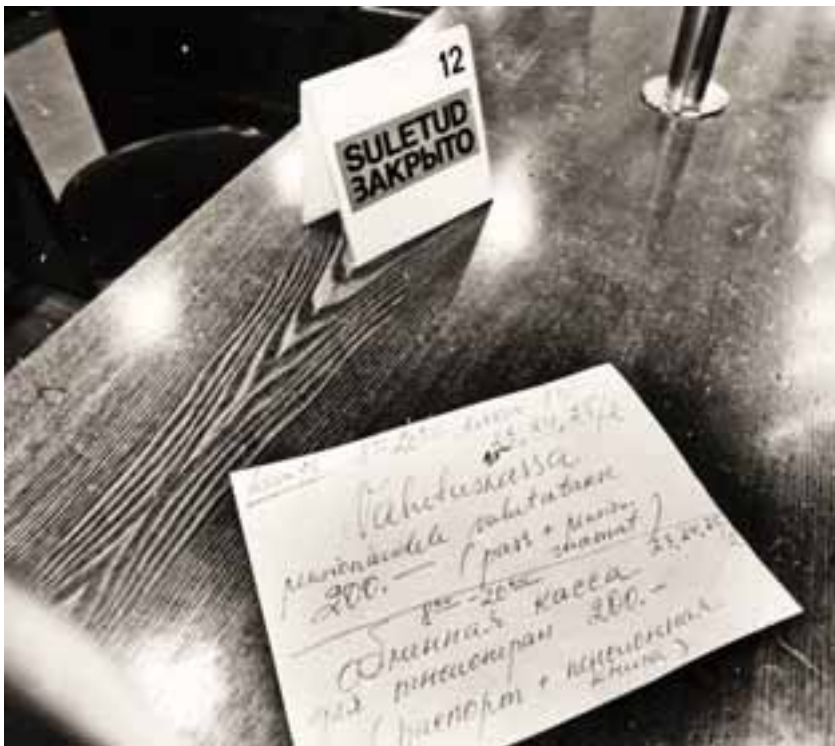 12
SULETUD
ЗАКРЫТО
23, 24, 25/1
Vahetuskassa
pensionäridele vahetatakse
200.— (pass + pension.
raamat)
8⁰⁰ - 20⁰⁰ 23, 24, 25/1
Обменная касса
для пенсионеран 200.-
(паспорт + пенсионная
книга)